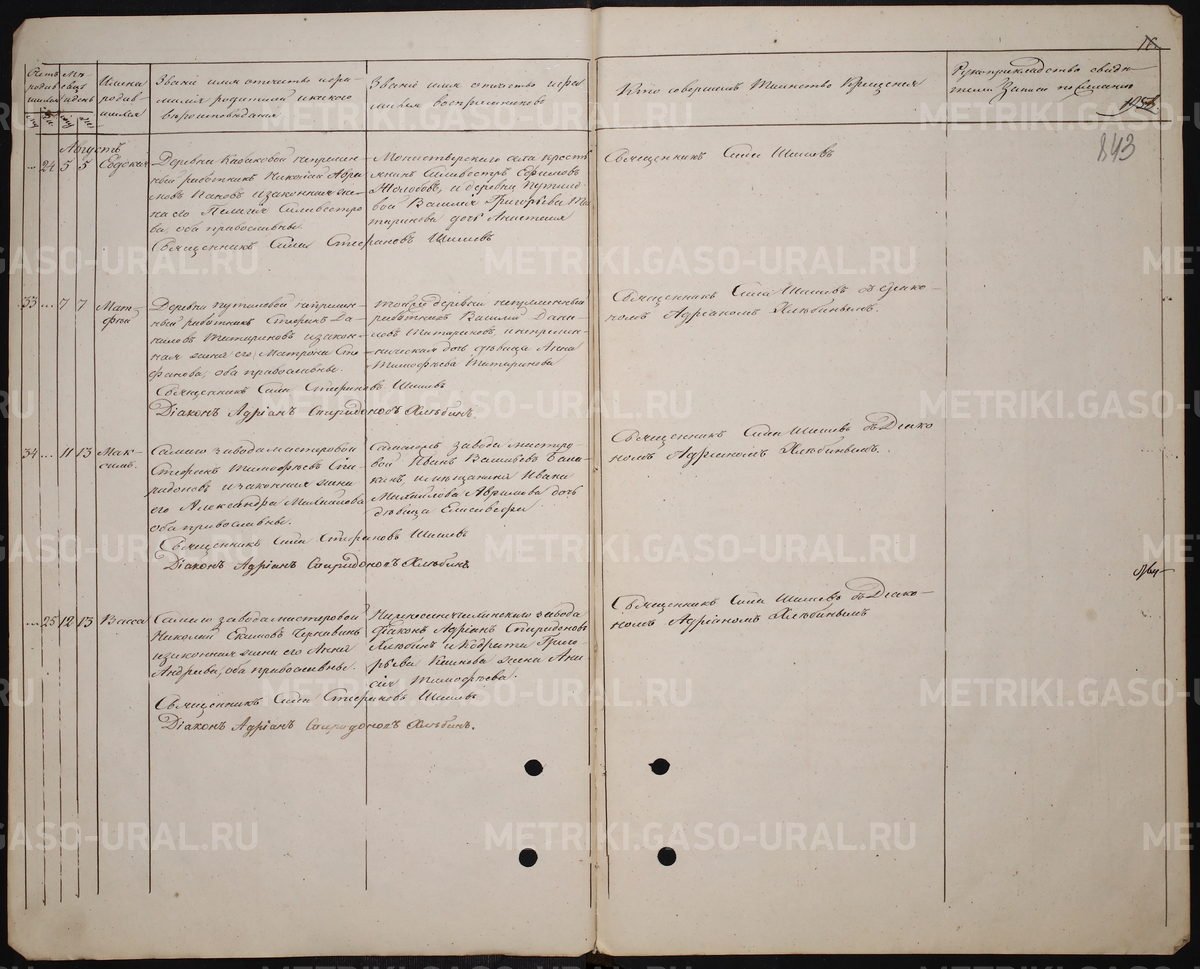 16.
Счетъ родившихся
Мѣсяцъ и день
Имена родившихся
Званіе имя отчество и фамилія родителей и какого вѣроисповѣданія
Званіе имя отчество и фамилія воспріемниковъ
Кто совершалъ Таинство Крещенія
Рукоприкладство свидѣтелей записи по желанію
195
843
Августъ
... 24 5 5 Евдокія
Деревни Кабаковой непремѣн-
ный работникъ Николай
Пановъ и законная же-
на его Пелагія Силвестро-
ва, оба православные.
Священникъ Сила Стефановъ Шишевъ
Монастырскаго села крестья-
нинъ Силвестръ Ефимовъ
и деревни Путило-
вой Василія Григорьева Та-
таринова дочь Анастасія
Священникъ Сила Шишевъ
33 ... 7 7 Мат-
фей
Деревни Путиловой непремѣн-
ный работникъ Стефанъ Да-
ниловъ Татариновъ и закон-
ная жена его Матрона Сте-
фанова, оба православные.
Священникъ Сила Стефановъ Шишевъ
Діаконъ Адріанъ Спиридоновъ Хлѣбинъ.
Тойже деревни непремѣнный
работникъ Василій Дани-
ловъ Татариновъ и непремѣн-
ническая дочь дѣвица Анна
Тимофѣева Татаринова
Священникъ Сила Шишевъ съ Діако-
номъ Адріаномъ Хлѣбинымъ.
34 ... 11 13 Мак-
симъ
Самаго завода мастеровой
Стефанъ Тимофѣевъ Спи-
ридоновъ и законная жена
его Александра Михайлова
оба православные.
Священникъ Сила Стефановъ Шишевъ
Діаконъ Адріанъ Спиридоновъ Хлѣбинъ
завода мастеро-
вой Иванъ Васильевъ Бала-
кинъ, и мѣщанина Ивана
Михайлова Абрамова дочь
дѣвица Елисавета
Священникъ Сила Шишевъ съ Діако
номъ Адріаномъ Хлѣбинымъ.
... 25 12 13 Васса
Самаго завода мастеровой
Николай Екимовъ
и законная жена его Анна
Андреева, оба православные.
Священникъ Сила Стефановъ Шишевъ
Діаконъ Адріанъ Спиридоновъ Хлѣбинъ.
завода
Діаконъ Адріанъ Спиридоновъ
Хлѣбинъ и Григо-
рьева жена Ани-
сія Тимофѣева.
Священникъ Сила Шишевъ съ Діако-
номъ Адріаномъ Хлѣбинымъ
METRIKI.GASO-URAL.RU